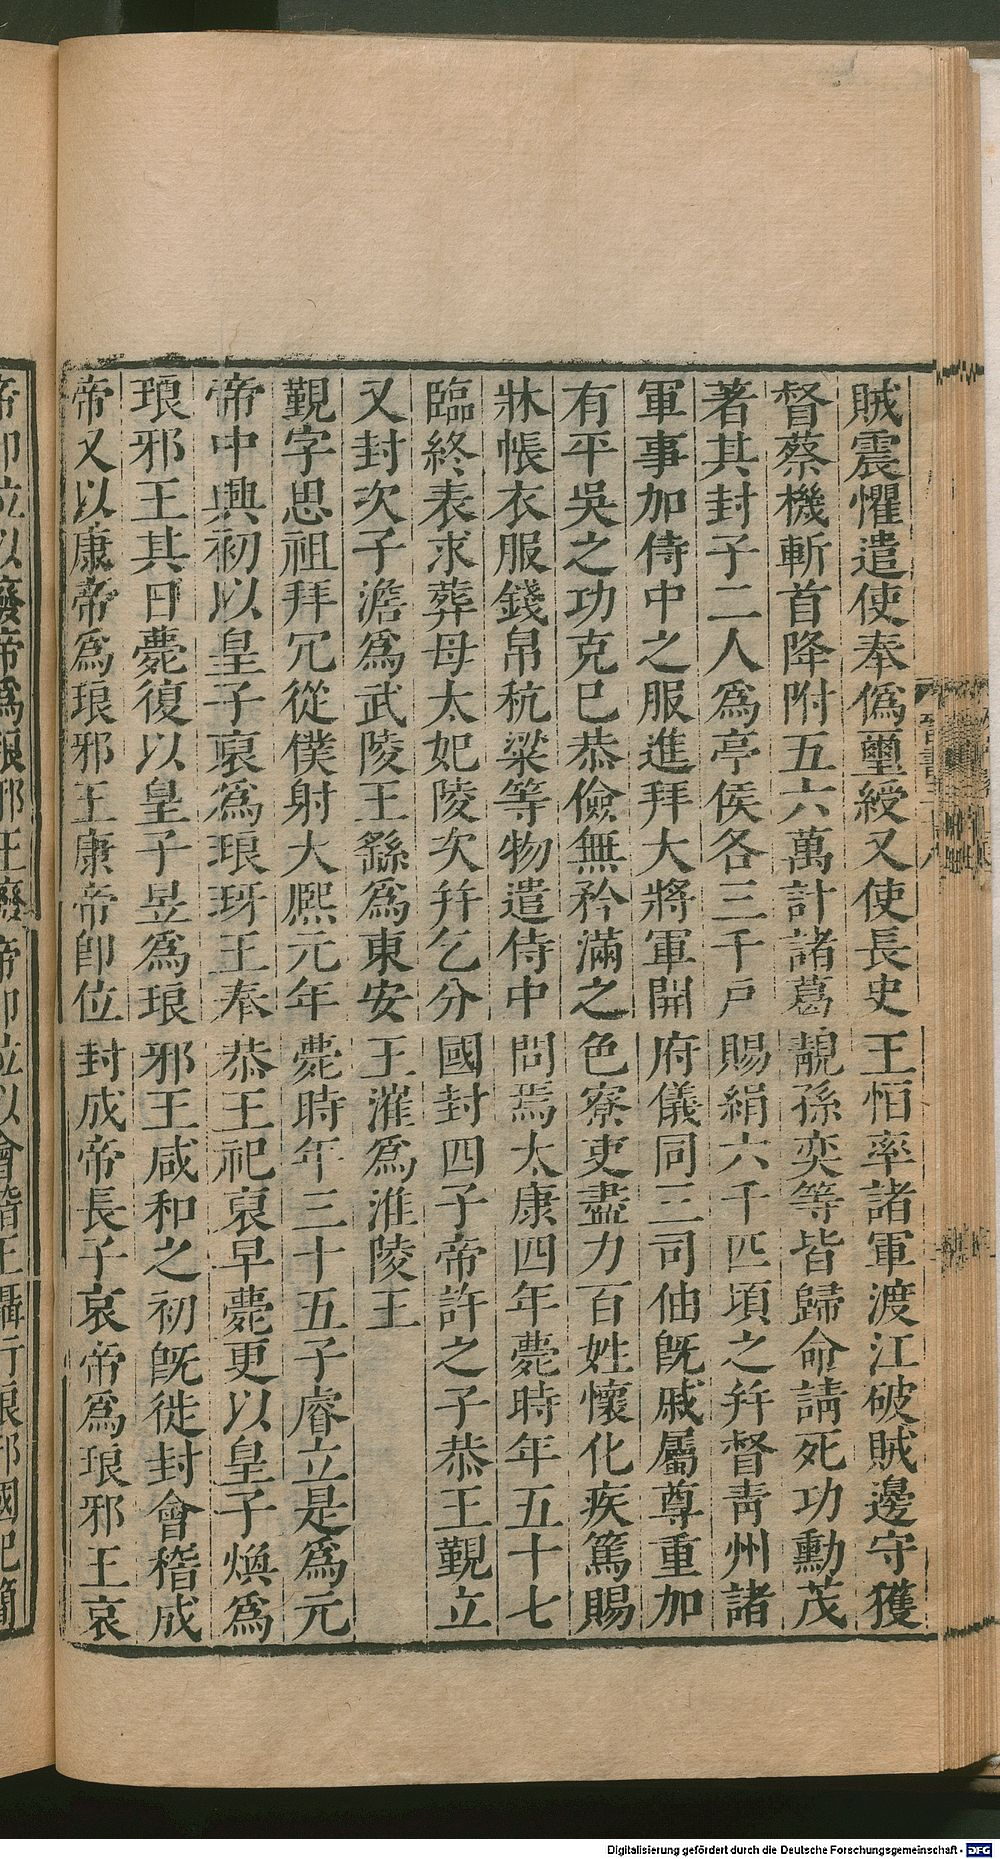 賊震懼遣使奉僞璽綬又使長史王恒率諸軍渡江破賊邊守獲
督蔡機斬首降附五六萬計諸葛靚孫奕等皆歸命請死功勳茂
著其封子二人爲亭侯各三千戸賜絹六千匹頃之幷督青州諸
軍事加侍中之服進拜大將軍開府儀同三司伷旣戚屬尊重加
有平吳之功克巳恭儉無矜滿之色寮吏盡力百姓懷化疾篤賜
牀帳衣服錢帛秔粱等物遣侍中問焉太康四年薨時年五十七
臨終表求葬母太妃陵次幷乞分國封四子帝許之子恭王覲立
又封次子澹爲武陵王繇爲東安王漼爲淮陵王
覲字思祖拜冗從僕射大熙元年薨時年三十五子睿立是爲元
帝中興初以皇子裒爲琅玡王奉恭王祀裒早薨更以皇子煥爲
琅邪王其日薨復以皇子昱爲琅邪王咸和之初旣徙封會稽成
帝又以康帝爲琅邪王康帝卽位封成帝長子哀帝爲琅邪王哀
帝卽位以廢帝爲琅邪王廢帝卽位以會稽王攝行琅邪國祀簡
Digitalisierung gefördert durch die Deutsche Forschungsgemeinschaft - DFG